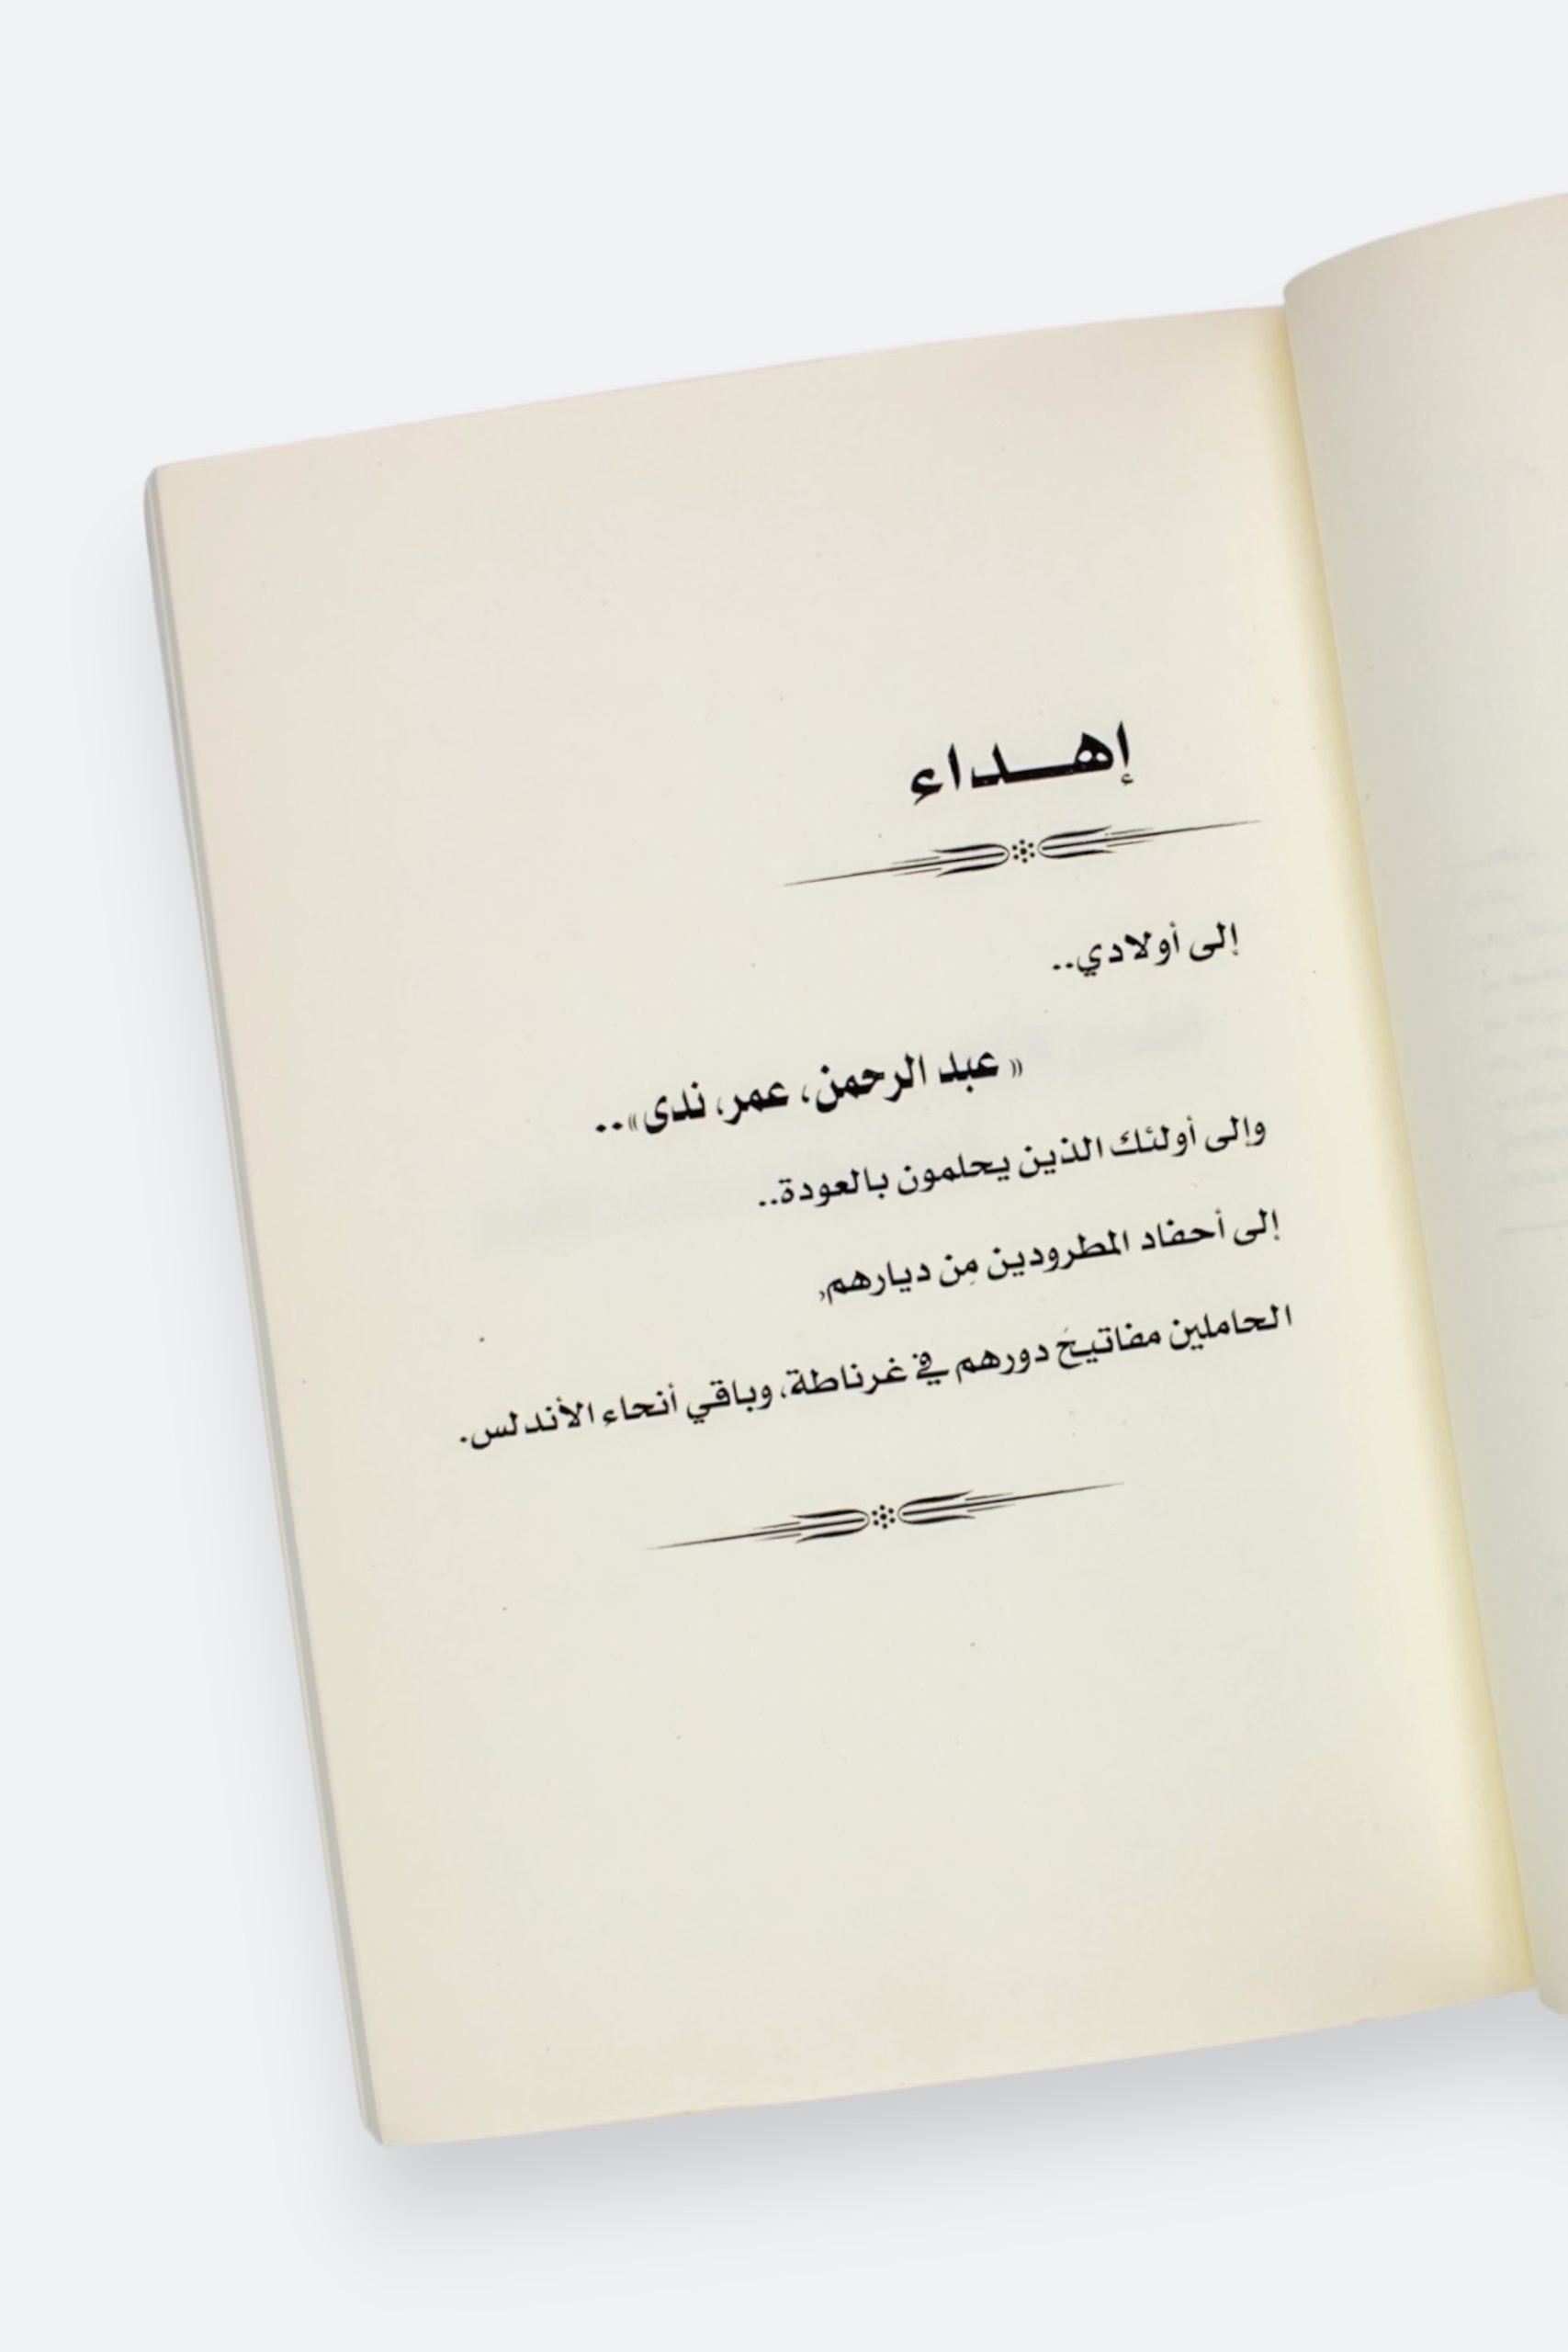 إهـــداء
إلى أولادي..
« عبد الرحمن، عمر، ندى»..
وإلى أولئك الذين يحلمون بالعودة..
إلى أحفاد المطرودين مِن ديارهم،
الحاملين مفاتيحَ دورهم في غرناطة، وباقي أنحاء الأندلس.